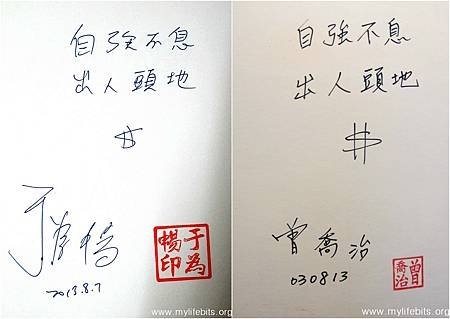 自強不息
出人頭地
$
于為暢
2013.8.7
于為
暢印
www.mylifebits.org
自強不息
出人頭地
$
曾喬治
030813
曾
喬治
www.mylifebits.org